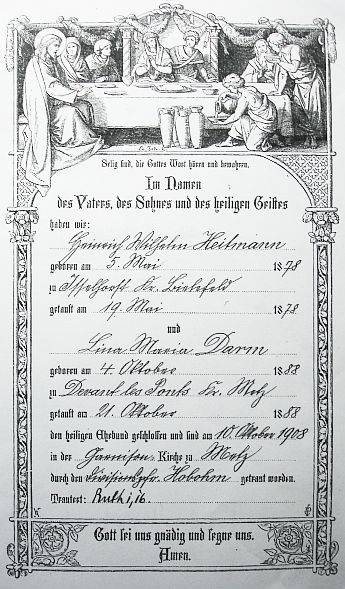 Selig sind, die Gottes Wort hören und bewahren.
Im Namen
des Vaters, des Sohnes und des heiligen Geistes
haben wir:
Heinrich Wilhelm Heitmann
geboren am 5. Mai 1878
zu Isselhorst Kr. Bielefeld
getauft am 19. Mai 1878
und
Lina Maria Darm
geboren am 4. Oktober 1888
zu Devant les Ponts Kr. Metz
getauft am 21. Oktober 1888
den heiligen Ehebund geschlossen und sind am 10. Oktober 1908
in der Garnison-Kirche zu Metz
durch den Divisionspfr. Hobohm getraut worden.
Trautext: Ruth 1, 16.
Gott sei uns gnädig und segne uns.
Amen.